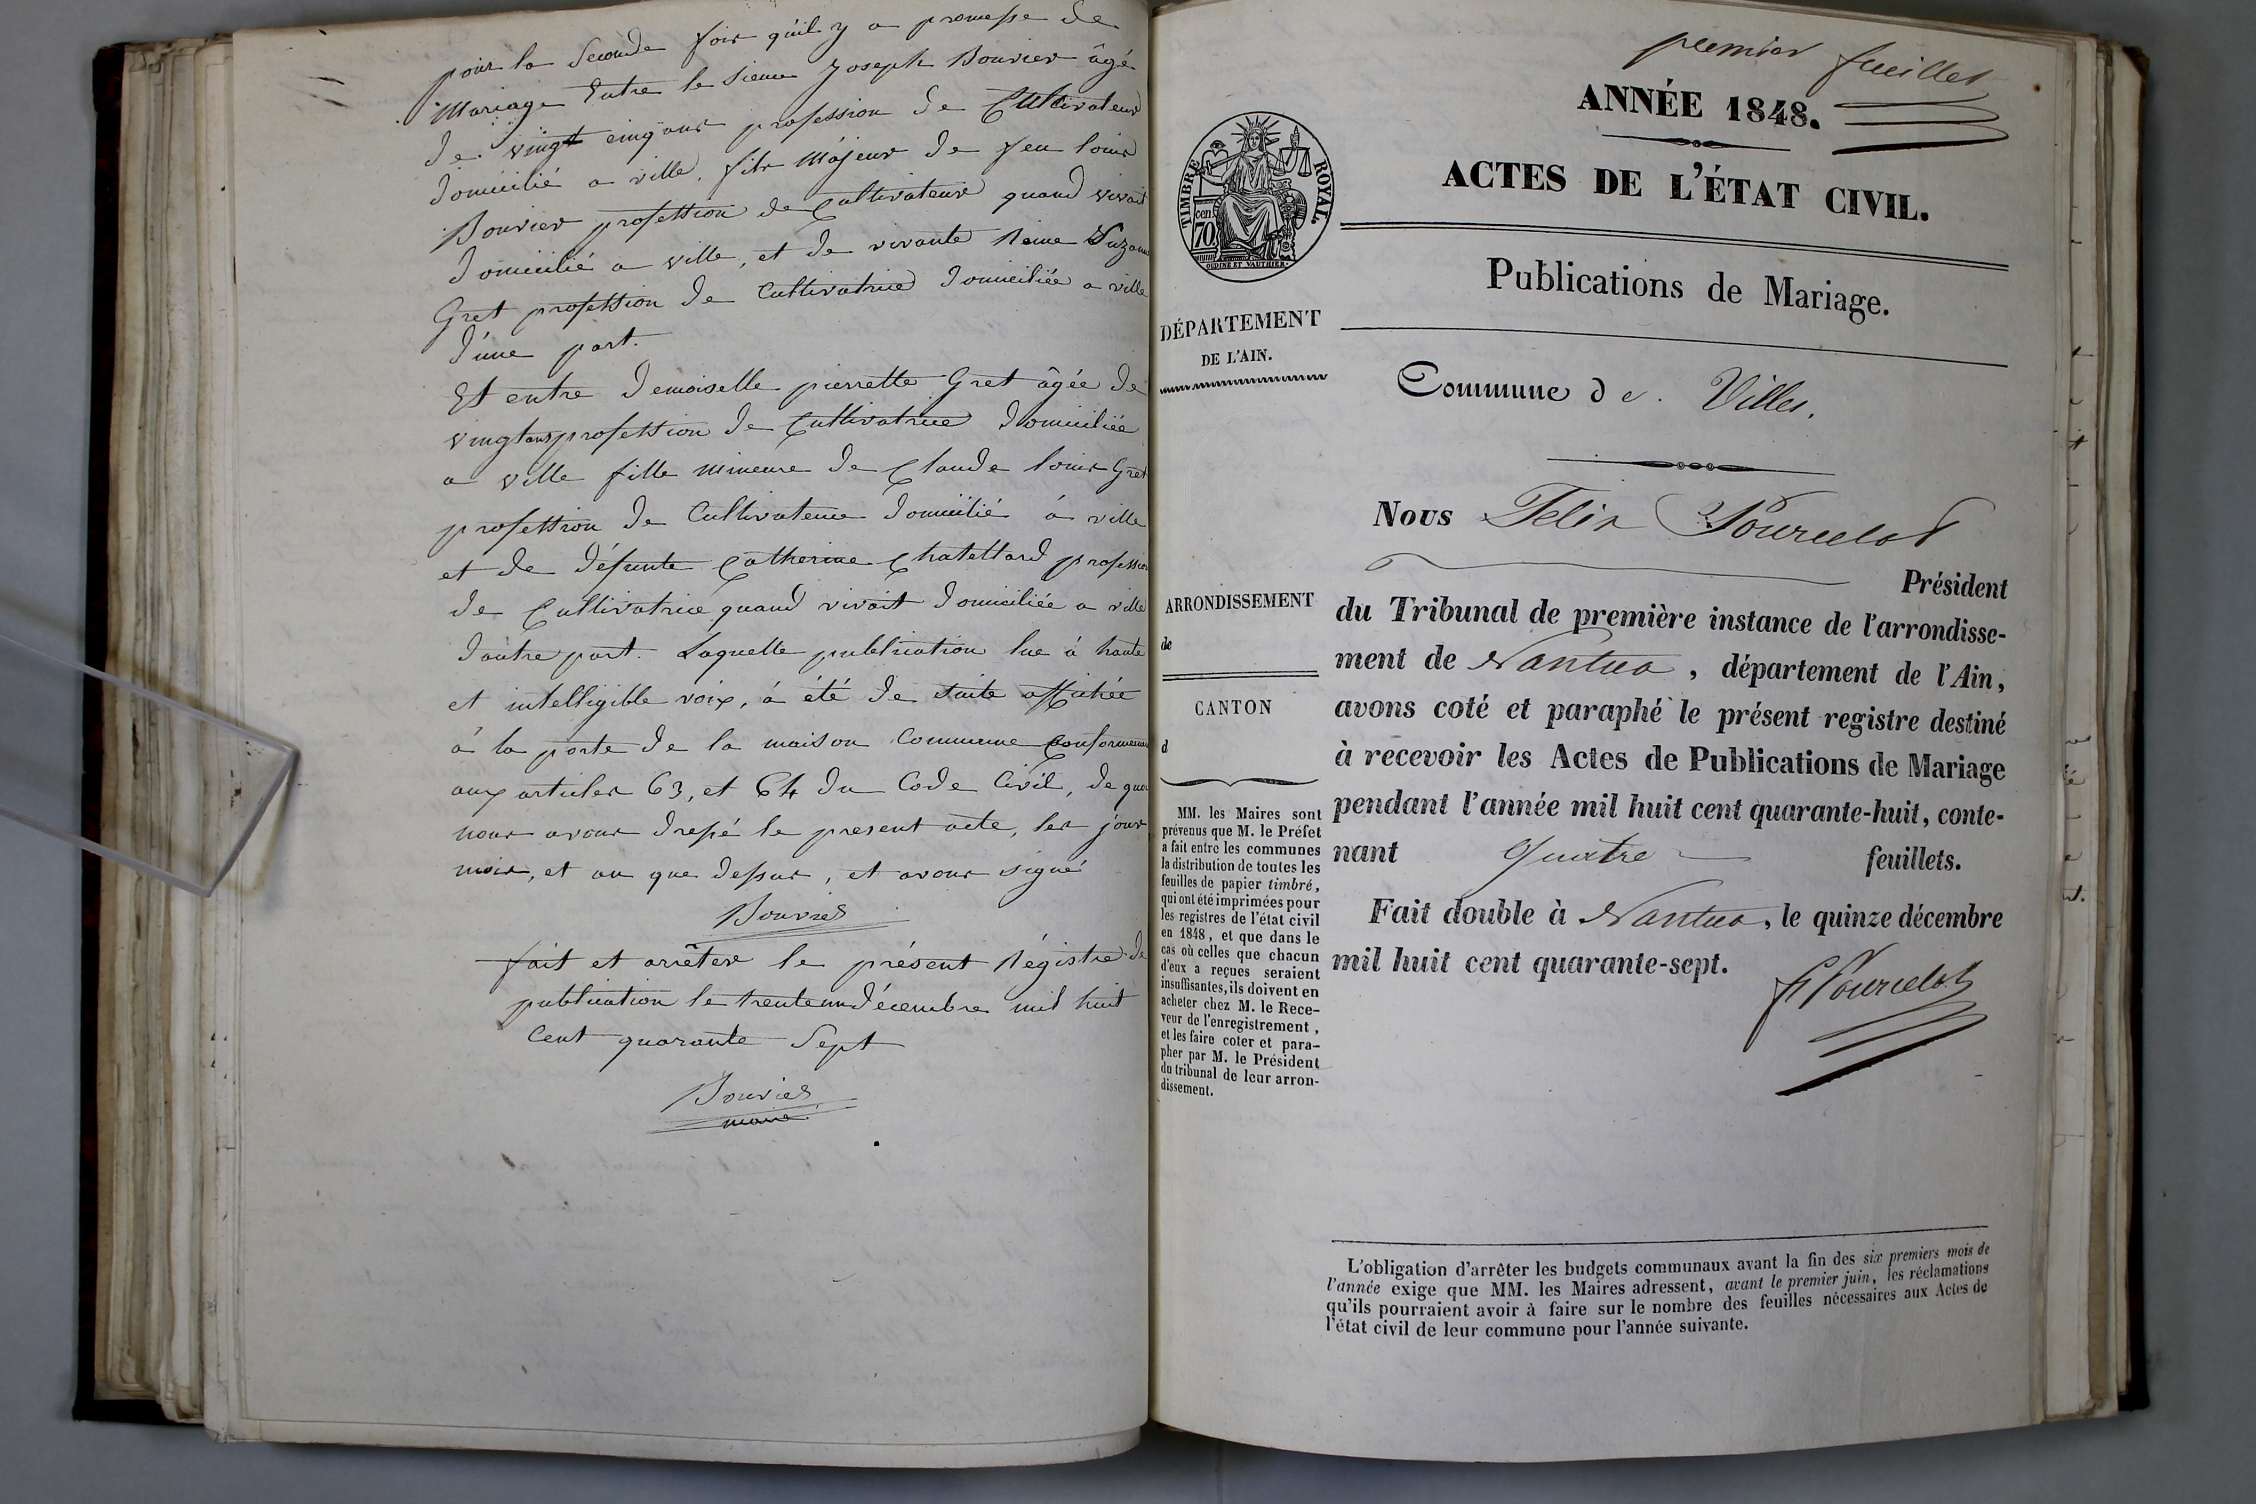 pour la seconde fois qu'il y a promesse de
Mariage Entre le sieur Joseph Bouvier âgé
de vingt cinq ans profession de Cultivateur
domicilié a ville, fils Majeur de feu louis
Bouvier profession de Cultivateur quand vivait
domicilié a ville, et de vivante Reine Suzanne
Gret profession de Cultivatrice domiciliée a ville
d'une part.
Et entre demoiselle pierrette Gret âgée de
vingt ans profession de Cultivatrice domiciliée
a ville fille mineure de Claude louis Gret
profession de Cultivateur domicilié à ville
et de défunte Catherine Chatellard profession
de Cultivatrice quand vivait domiciliée a ville
d'autre part. Laquelle publication lue à haute
et intelligible voix, à été de suite affichée
à la porte de la maison Commune Conformement
aux articles 63, et 64 du Code Civil, de quoi
nous avons dressé le present acte, les jour
mois, et an que dessus, et avons signé
Bouvier
fait et arrêter le présent Régistre de
publication le trente un décembre mil huit
Cent quarante Sept
Bouvier
maire
premier feuillet
ANNÉE 1848.
ACTES DE L'ÉTAT CIVIL.
TIMBRE ROYAL.
cen.
70
Publications de Mariage.
DÉPARTEMENT
DE L'AIN.
Commune de Villes.
Nous Felix Pourcelot
Président
du Tribunal de première instance de l'arrondisse-
ment de Nantua, département de l'Ain,
avons coté et paraphé le présent registre destiné
à recevoir les Actes de Publications de Mariage
pendant l'année mil huit cent quarante-huit, conte-
nant quatre feuillets.
Fait double à Nantua, le quinze décembre
mil huit cent quarante-sept.
F. Pourcelot
ARRONDISSEMENT
de
CANTON
d
MM. les Maires sont
prévenus que M. le Préfet
a fait entre les communes
la distribution de toutes les
feuilles de papier timbré,
qui ont été imprimées pour
les registres de l'état civil
en 1848, et que dans le
cas où celles que chacun
d'eux a reçues seraient
insuffisantes, ils doivent en
acheter chez M. le Rece-
veur de l'enregistrement,
et les faire coter et para-
pher par M. le Président
du tribunal de leur arron-
dissement.
L'obligation d'arrêter les budgets communaux avant la fin des six premiers mois de
l'année exige que MM. les Maires adressent, avant le premier juin, les réclamations
qu'ils pourraient avoir à faire sur le nombre des feuilles nécessaires aux Actes de
l'état civil de leur commune pour l'année suivante.